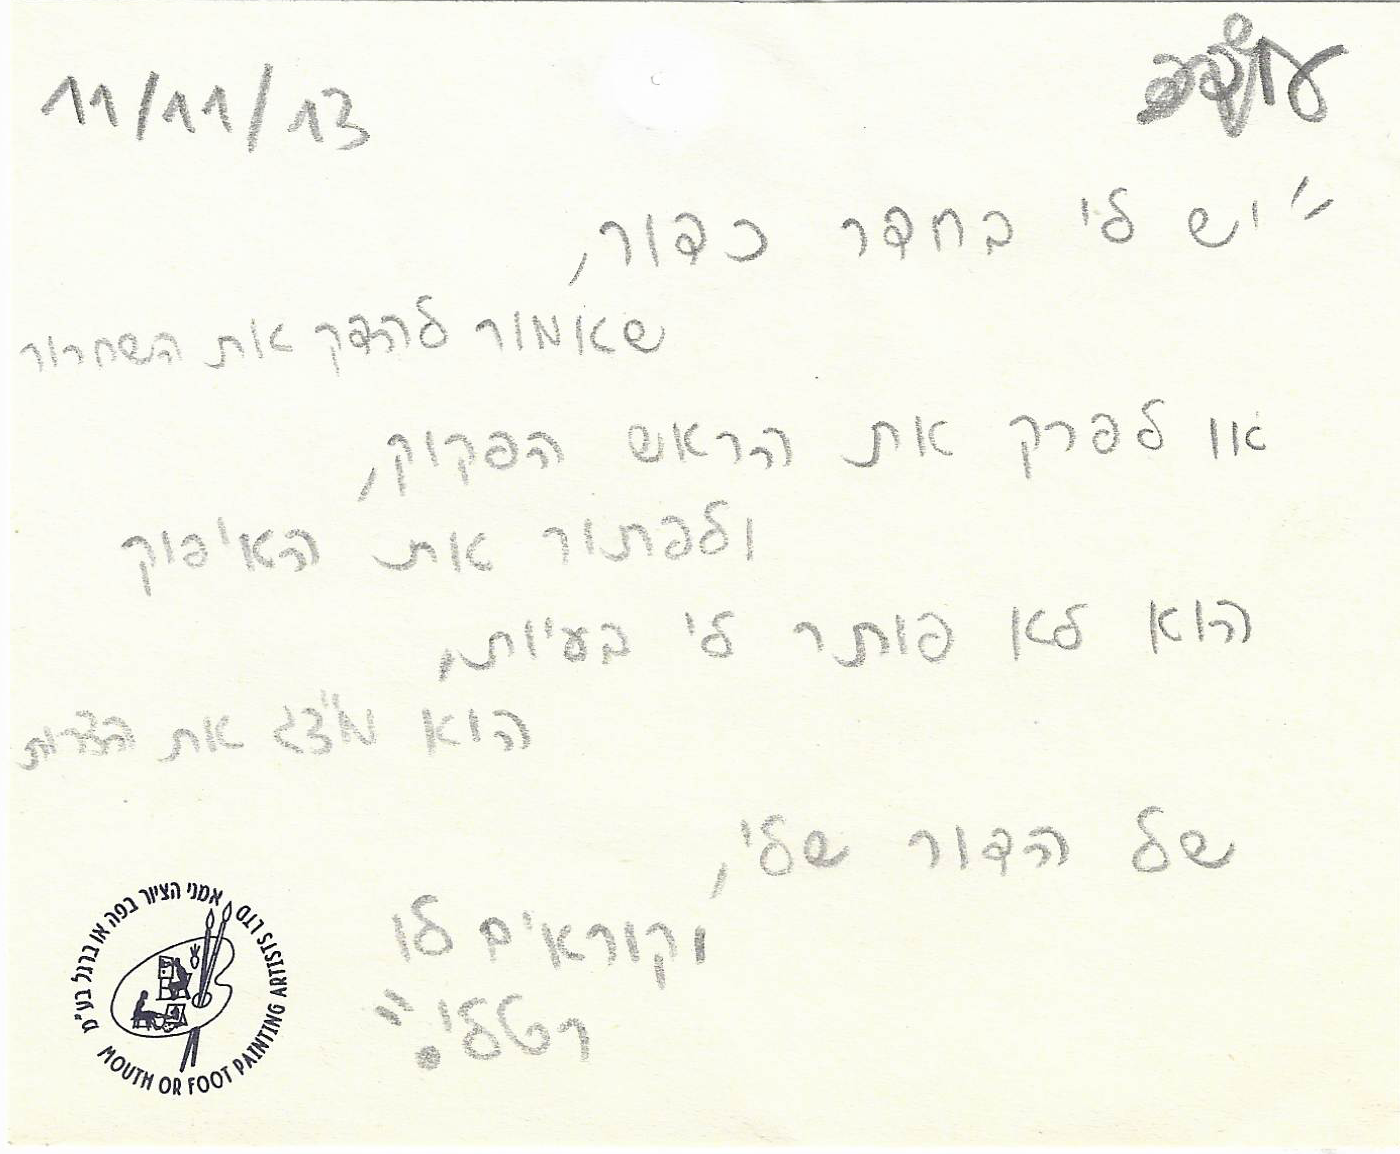 11/11/13
"יש לי בחדר כדור,
שאמור להדק את השחרור
או לפרק את הראש הפקוק,
ולפתור את האיפוק
הוא לא פותר לי בעיות,
הוא מייצג את הצרות
של הדור שלי,
וקוראים לו
רטלי."
אמני הציור בפה או ברגל בע"מ
MOUTH OR FOOT PAINTING ARTISTS LTD